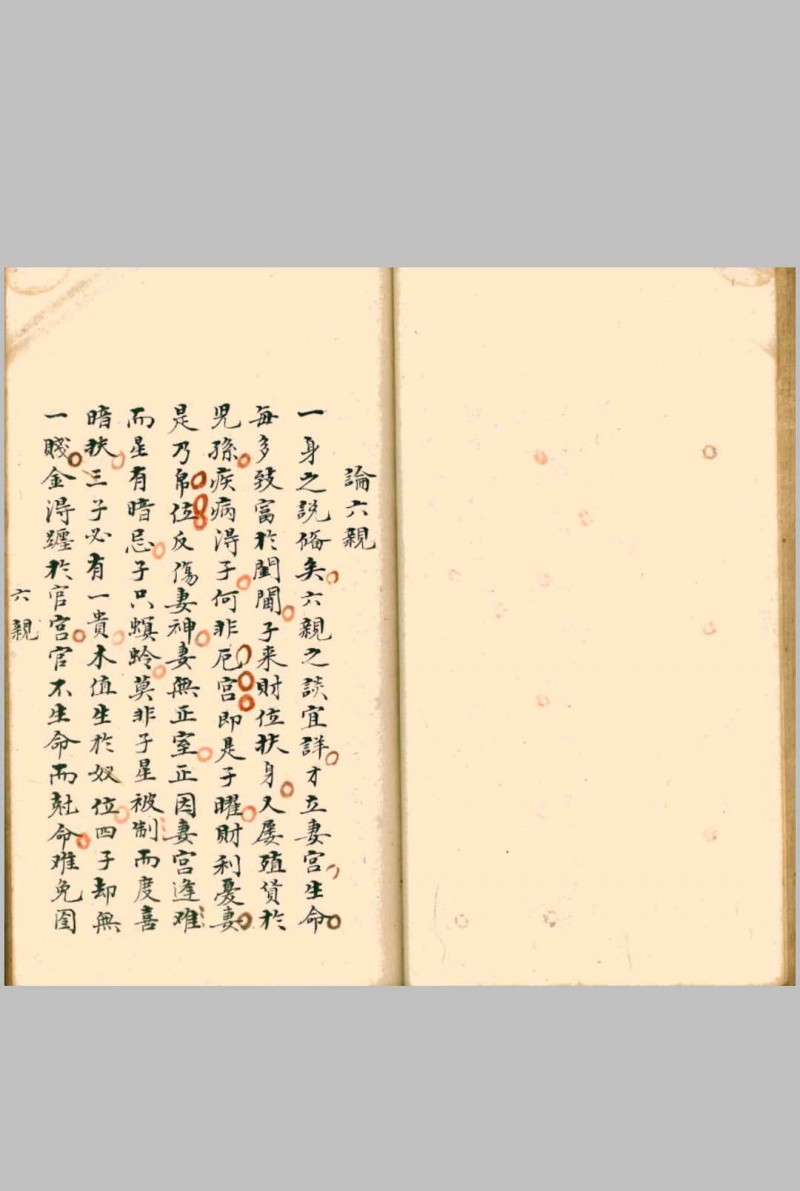 論六親
一身之說俻矣六親之談宜詳才立妻宮生命
每多致富於閨閫子来財位扶身又屡殖貨於
児孫疾病淂子何非厄宮即是子曜財利憂妻
是乃帛位反傷妻神妻無正室正因妻宮逢难
而星有暗忌子只螟蛉莫非子星被制而度喜
暗扶三子必有一貴木值生於奴位四子却無
一賤金淂躔於官宮官不生命而尅命难免囹
六親